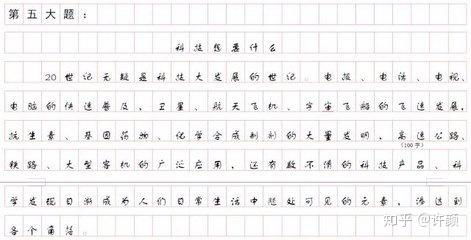 第五大题:
科技想要什么
20世纪无疑是科技大发展的世纪。电报、电话、电视、
电脑的快速普及,卫星、航天飞机、宇宙飞船的飞速发展,
抗生素、基因药物、化学合成制剂的大量发明,高速公路、
(100字)
铁路、大型客机的广泛应用,还有数不清的科技产品、科
学发现日渐成为人们日常生活中随处可见的元素,渗透到
各个角落。
知乎 @许颜